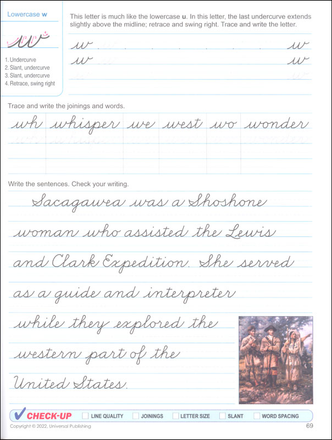 Lowercase w
This letter is much like the lowercase u. In this letter, the last undercurve extends
slightly above the midline; retrace and swing right. Trace and write the letter.
w
w w
w w
1. Undercurve
2. Slant, undercurve
3. Slant, undercurve
4. Retrace, swing right
Trace and write the joinings and words.
wh whisper we west wo wonder
Write the sentences. Check your writing.
Sacagawea was a Shoshone
woman who assisted the Lewis
and Clark Expedition. She served
as a guide and interpreter
while they explored the
western part of the
United States.
CHECK-UP LINE QUALITY JOININGS LETTER SIZE SLANT WORD SPACING
Copyright © 2022, Universal Publishing 69